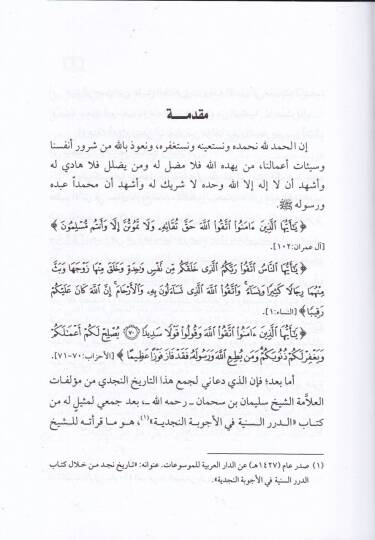 مقدمــة
إن الحمد لله نحمده ونستعينه ونستغفره، ونعوذ بالله من شرور أنفسنا
وسيئات أعمالنا، من يهده الله فلا مضل له ومن يضلل فلا هادي له
وأشهد أن لا إله إلا الله وحده لا شريك له وأشهد أن محمداً عبده
ورسوله ﷺ.
﴿ يَٰٓأَيُّهَا ٱلَّذِينَ ءَامَنُوا۟ ٱتَّقُوا۟ ٱللَّهَ حَقَّ تُقَاتِهِۦ وَلَا تَمُوتُنَّ إِلَّا وَأَنتُم مُّسْلِمُونَ ﴾
[آل عمران:١٠٢].
﴿ يَٰٓأَيُّهَا ٱلنَّاسُ ٱتَّقُوا۟ رَبَّكُمُ ٱلَّذِى خَلَقَكُم مِّن نَّفْسٍ وَٰحِدَةٍ وَخَلَقَ مِنْهَا زَوْجَهَا وَبَثَّ
مِنْهُمَا رِجَالًا كَثِيرًا وَنِسَآءً ۚ وَٱتَّقُوا۟ ٱللَّهَ ٱلَّذِى تَسَآءَلُونَ بِهِۦ وَٱلْأَرْحَامَ ۚ إِنَّ ٱللَّهَ كَانَ عَلَيْكُمْ
رَقِيبًا ﴾ [النساء:١].
﴿ يَٰٓأَيُّهَا ٱلَّذِينَ ءَامَنُوا۟ ٱتَّقُوا۟ ٱللَّهَ وَقُولُوا۟ قَوْلًا سَدِيدًا ﴿٧٠﴾ يُصْلِحْ لَكُمْ أَعْمَٰلَكُمْ
وَيَغْفِرْ لَكُمْ ذُنُوبَكُمْ وَمَن يُطِعِ ٱللَّهَ وَرَسُولَهُۥ فَقَدْ فَازَ فَوْزًا عَظِيمًا ﴾ [الأحزاب:٧٠-٧١].
أما بعد؛ فإن الذي دعاني لجمع هذا التاريخ النجدي من مؤلفات
العلامة الشيخ سليمان بن سحمان ـ رحمه الله ـ، بعد جمعي لمثيل له من
كتاب «الدرر السنية في الأجوبة النجدية»(١)، هو ما قرأته للشيخ
(١) صدر عام (١٤٢٧هـ) عن الدار العربية للموسوعات. عنوانه: «تاريخ نجد من خلال كتاب
الدرر السنية في الأجوبة النجدية».